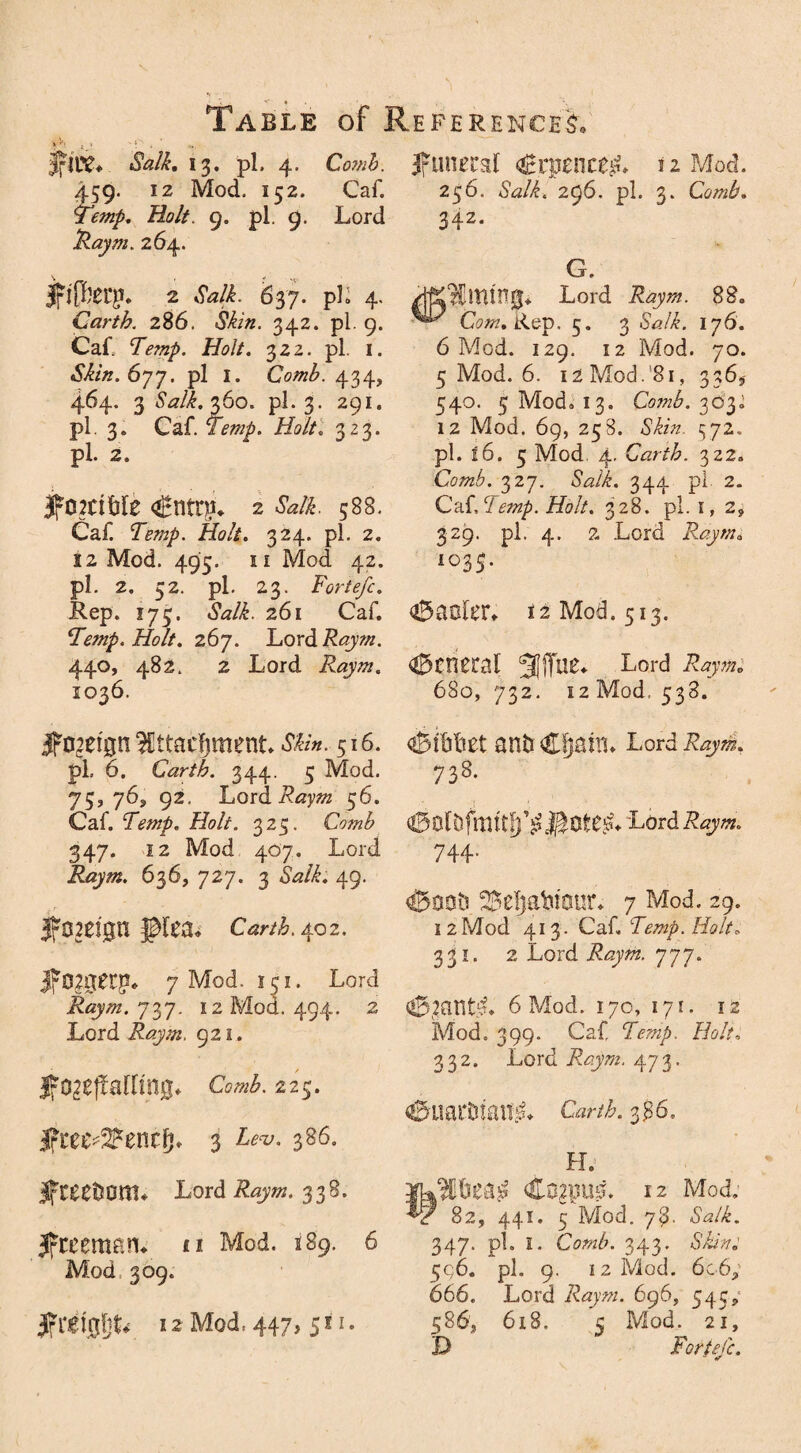 TABLE of REFERENCES.
Fire. Salk. 13. pl. 4. Comb.
459. 12 Mod. 152. Caf.
Temp. Holt. 9. pl. 9. Lord
Raym. 264.
Fiſhery. 2 Salk. 637. pl. 4.
Carth. 286. Skin. 342. pl. 9.
Caſ. Temp. Holt. 322. pl. 1.
Skin. 677. pl 1. Comb. 434,
464. 3 Salk. 360. pl. 3. 291.
pl. 3. Caſ. Temp. Holt. 323.
pl. 2.
Forcible Entry. 2 Salk. 588.
Caſ. Temp. Holt. 324. pl. 2.
12 Mod. 495. 11 Mod 42.
pl. 2. 52. pl. 23. Forteſc.
Rep. 175. Salk. 261 Caſ.
Temp. Holt. 267. Lord Raym.
440, 482. 2 Lord Raym.
1036.
Foreign Attachment. Skin. 516.
pl. 6. Carth. 344. 5 Mod.
75, 76, 92. Lord Raym 56.
Caſ. Temp. Holt. 325. Comb
347. 12 Mod 407. Lord
Raym. 636, 727. 3 Salk. 49.
Foreign Plea. Carth. 402.
Forgery. 7 Mod. 151. Lord
Raym. 737. 12 Mod. 494. 2
Lord Raym. 921.
Foreſtalling. Comb. 225.
Free-Bench. 3 Lev. 386.
Freedom. Lord Raym. 338.
Freeman. 11 Mod. 189. 6
Mod. 309.
Freight. 12 Mod. 447, 511.
Funeral Expences. 12 Mod.
256. Salk. 296. pl. 3. Comb.
342.
G.
GAming. Lord Raym. 88.
Com. Rep. 5. 3 Salk. 176.
6 Mod. 129. 12 Mod. 70.
5 Mod. 6. 12 Mod. 81, 336,
540. 5 Mod. 13. Comb. 303.
12 Mod. 69, 258. Skin. 572.
pl. 16. 5 Mod 4. Carth. 322.
Comb. 327. Salk. 344 pl 2.
Caſ. Temp. Holt. 328. pl. 1, 2,
329. pl. 4. 2 Lord Raym.
1035.
Gaoler. 12 Mod. 513.
General Iſſue. Lord Raym.
680, 732. 12 Mod. 538.
Gibbet and Chain. Lord Raym.
738.
Goldſmith's Notes. Lord Raym.
744.
Good Behaviour. 7 Mod. 29.
12 Mod 413. Caſ. Temp. Holt.
331. 2 Lord Raym. 777.
Grants. 6 Mod. 170, 171. 12
Mod. 399. Caſ. Temp. Holt.
332. Lord Raym. 473.
Guardians. Carth. 386.
H.
HAbeas Corpus. 12 Mod.
82, 441. 5 Mod. 78. Salk.
347. pl. 1. Comb. 343. Skin.
506. pl. 9. 12 Mod. 606,
666. Lord Raym. 696, 545,
586, 618. 5 Mod. 21,
D Forteſc.